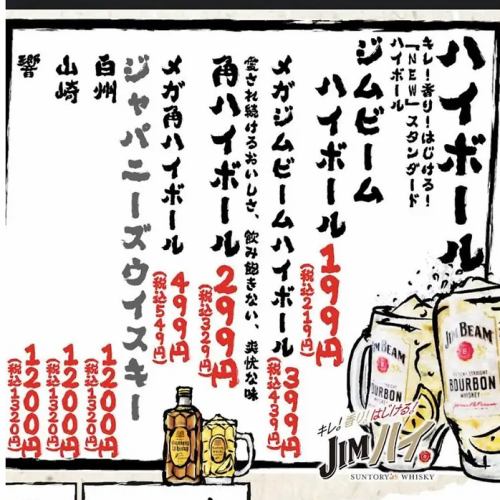 ハイボール
キレ!香り!はじける!
『NEW』スタンダード
ハイボール
ジムビーム
ハイボール
199円
(税込219円)
メガジムビームハイボール
399円
(税込439円)
愛され続けるおいしさ、飲み飽きない、爽快な味
角ハイボール
299円
(税込329円)
メガ角ハイボール
499円
(税込549円)
ジャパニーズウイスキー
白州
1200円
(税込1320円)
山崎
1200円
(税込1320円)
響
1200円
(税込1320円)
JIM BEAM
BOURBON
WHISKEY
JIM BEAM
KENTUCKY STRAIGHT
BOURBON
WHISKEY
キレ!香り!はじける!
JIMハイ
SUNTORY WHISKY